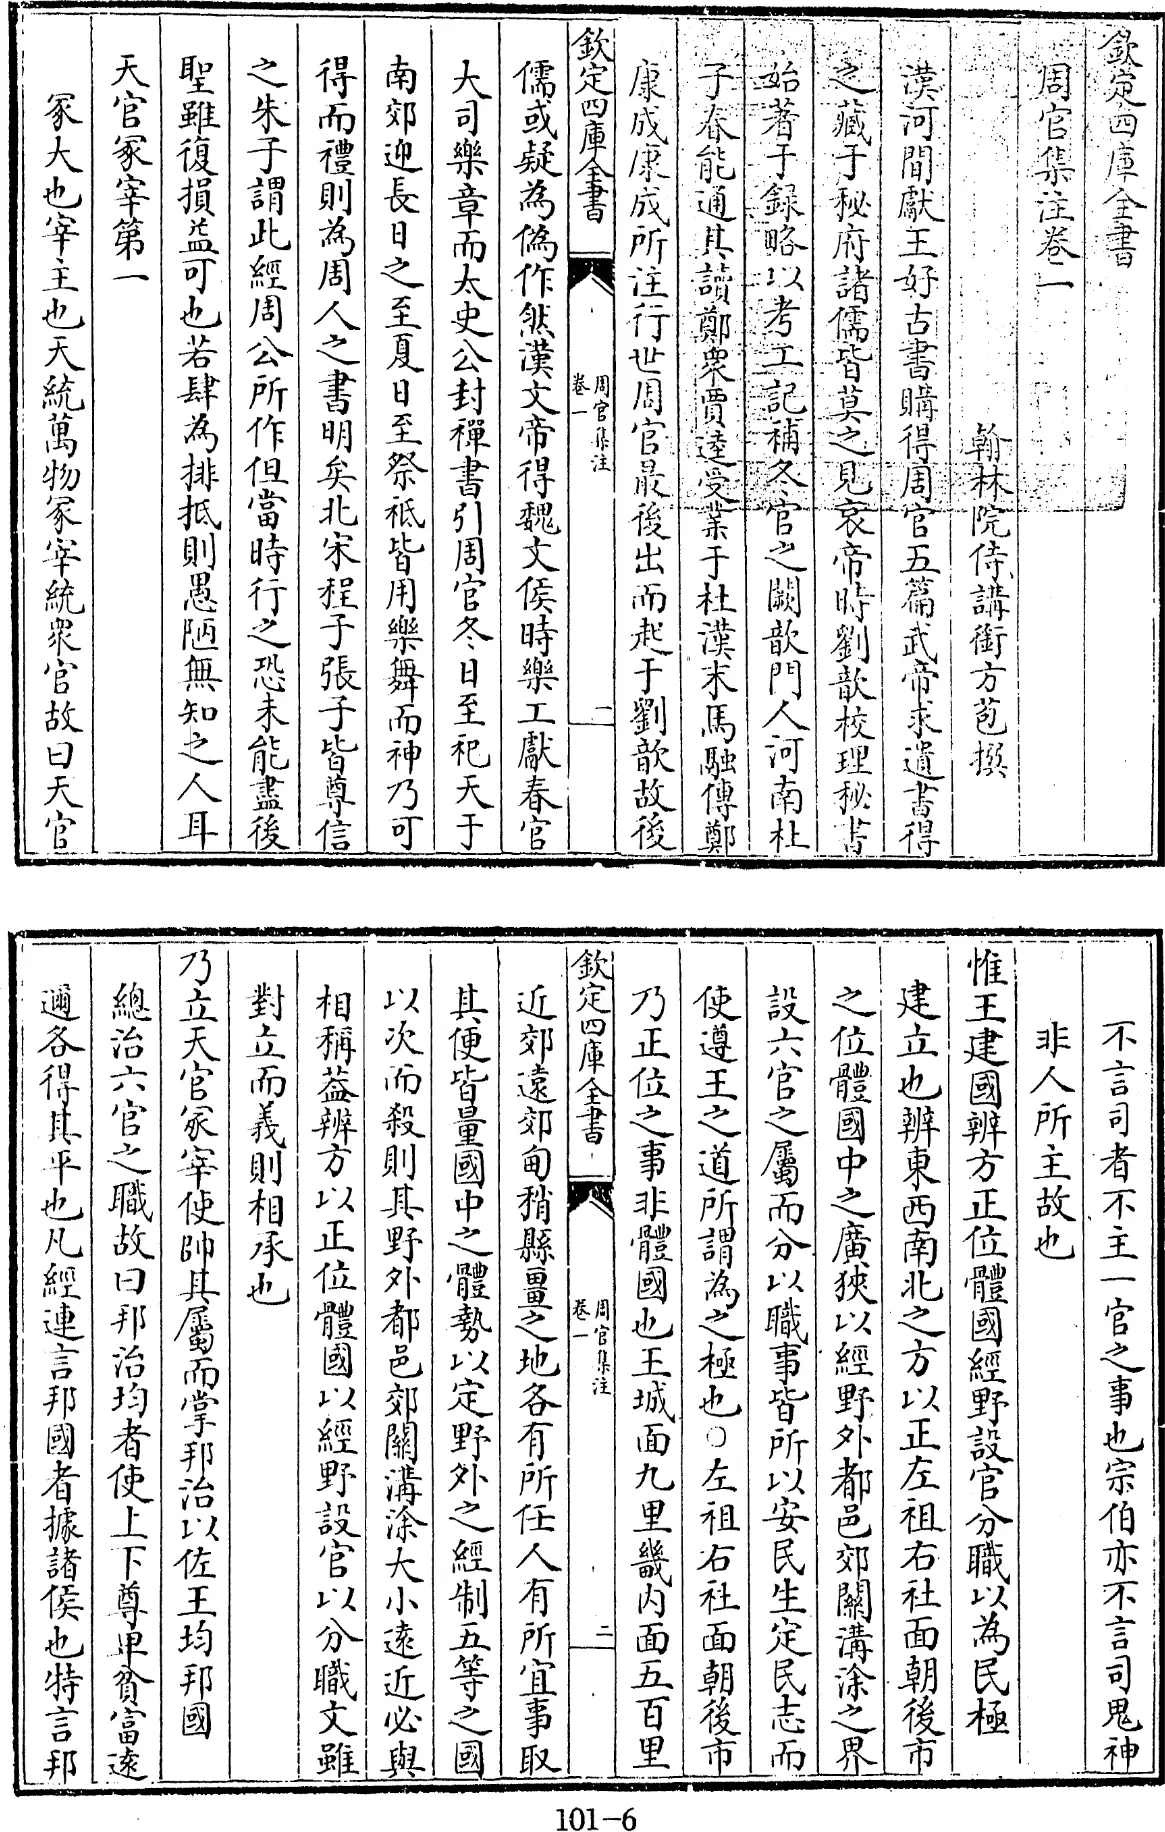 欽定四庫全書
周官集注卷一
翰林院侍講銜方苞撰
漢河間獻王好古書購得周官五篇武帝求遺書得
之藏于秘府諸儒皆莫之見哀帝時劉歆校理秘書
始著于録略以考工記補冬官之闕歆門人河南杜
子春能通其讀鄭衆賈逵受業于杜漢末馬融傳鄭
康成康成所注行世周官最後出而起于劉歆故後
欽定四庫全書
周官集注
卷一
一
儒或疑為偽作然漢文帝得魏文侯時樂工獻春官
大司樂章而太史公封禪書引周官冬日至祀天于
南郊迎長日之至夏日至祭祗皆用樂舞而神乃可
得而禮則為周人之書明矣北宋程子張子皆尊信
之朱子謂此經周公所作但當時行之恐未能盡後
聖雖復損益可也若肆為排抵則愚陋無知之人耳
天官冢宰第一
冢大也宰主也天統萬物冢宰統衆官故曰天官
不言司者不主一官之事也宗伯亦不言司鬼神
非人所主故也
惟王建國辨方正位體國經野設官分職以為民極
建立也辨東西南北之方以正左祖右社面朝後市
之位體國中之廣狹以經野外都邑郊關溝涂之界
設六官之屬而分以職事皆所以安民生定民志而
使遵王之道所謂為之極也○左祖右社面朝後市
乃正位之事非體國也王城面九里畿内面五百里
欽定四庫全書
周官集注
卷一
二
近郊遠郊甸稍縣畺之地各有所任人有所宜事取
其便皆量國中之體勢以定野外之經制五等之國
以次而殺則其野外都邑郊關溝涂大小遠近必與
相稱葢辨方以正位體國以經野設官以分職文雖
對立而義則相承也
乃立天官冢宰使帥其屬而掌邦治以佐王均邦國
總治六官之職故曰邦治均者使上下尊卑貧富遠
邇各得其平也凡經連言邦國者據諸侯也特言邦
101-6